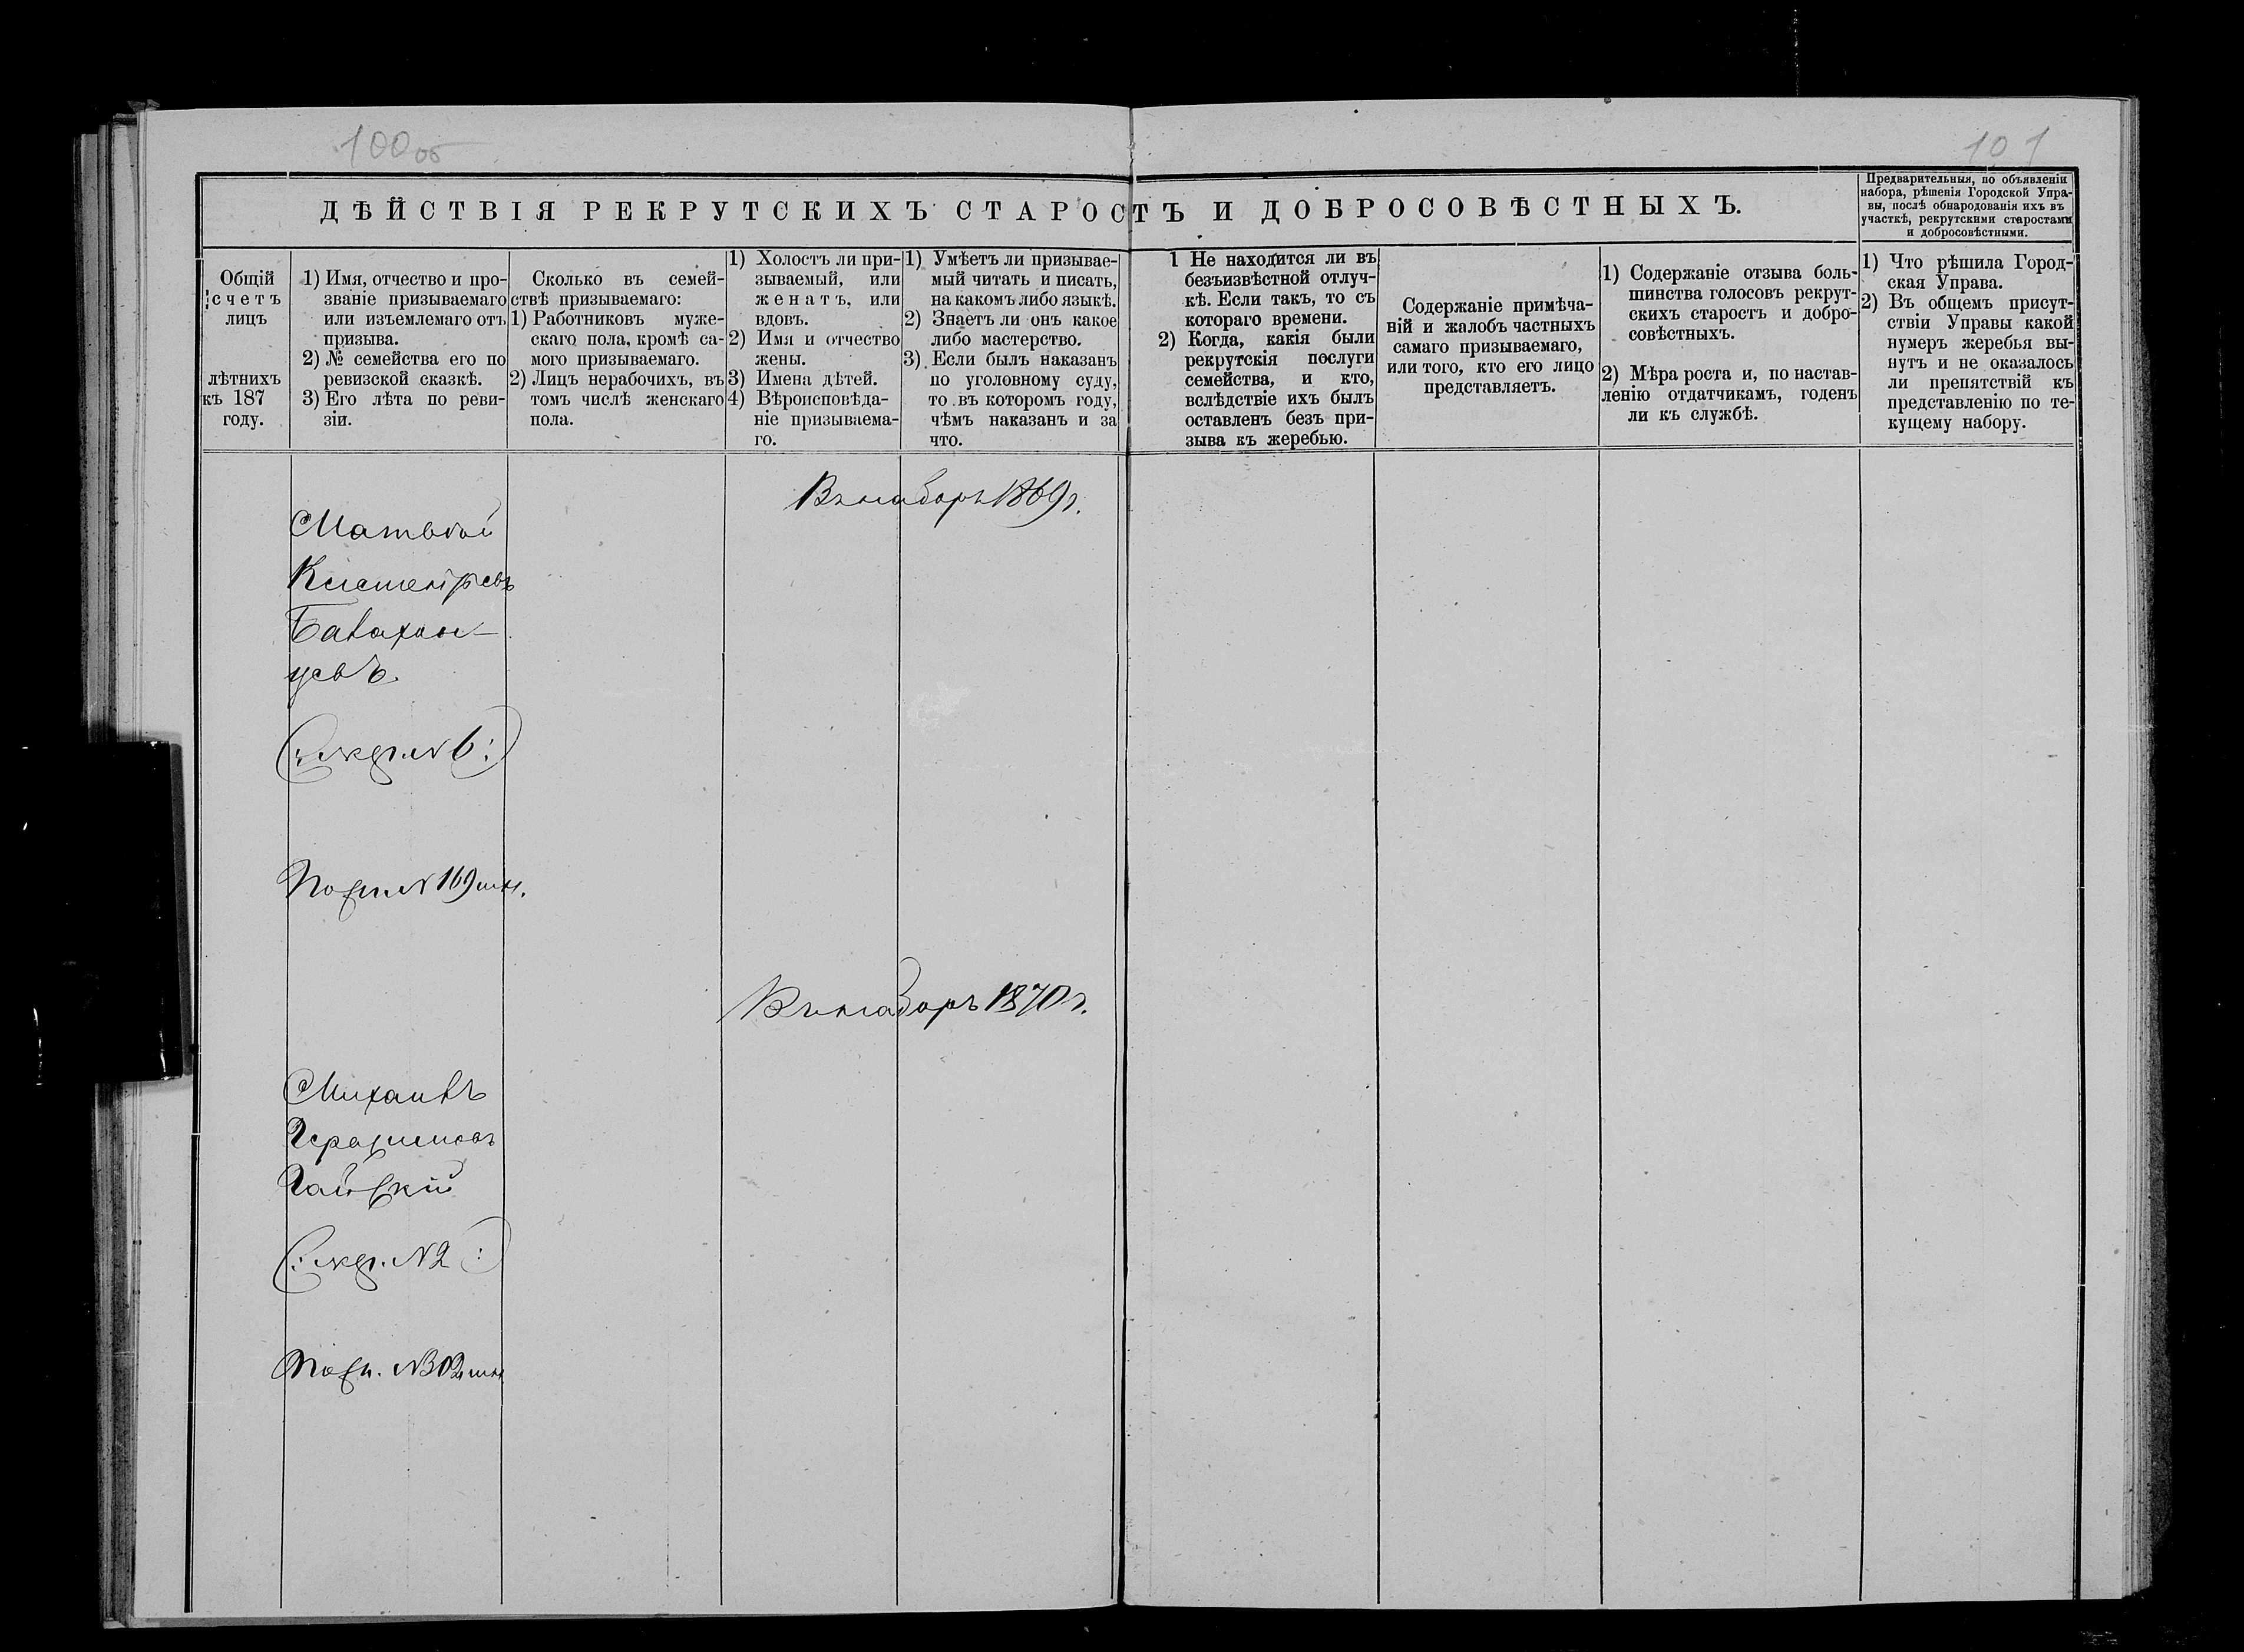 100 об
101
ДѢЙСТВІЯ РЕКРУТСКИХЪ СТАРОСТЪ И ДОБРОСОВѢСТНЫХЪ.
Предварительныя, по объявленіи
набора, рѣшенія Городской Упра-
вы, послѣ обнародованія ихъ въ
участкѣ, рекрутскими старостами
и добросовѣстными.
Общій
счетъ
лицъ
лѣтнихъ
къ 187
году.
1) Имя, отчество и про-
званіе призываемаго
или изъемлемаго отъ
призыва.
2) № семейства его по
ревизской сказкѣ.
3) Его лѣта по реви-
зіи.
Сколько въ семей-
ствѣ призываемаго:
1) Работниковъ муже-
скаго пола, кромѣ са-
мого призываемаго.
2) Лицъ нерабочихъ, въ
томъ числѣ женскаго
пола.
1) Холостъ ли при-
зываемый, или
женатъ, или
вдовъ.
2) Имя и отчество
жены.
3) Имена дѣтей.
4) Вѣроисповѣда-
ніе призываема-
го.
1) Умѣетъ ли призывае-
мый читать и писать,
на какомъ либо языкѣ.
2) Знаетъ ли онъ какое
либо мастерство.
3) Если былъ наказанъ
по уголовному суду,
то въ которомъ году,
чѣмъ наказанъ и за
что.
1 Не находится ли въ
безъизвѣстной отлуч-
кѣ. Если такъ, то съ
котораго времени.
2) Когда, какія были
рекрутскія послуги
семейства, и кто,
вслѣдствіе ихъ былъ
оставленъ безъ при-
зыва къ жеребью.
Содержаніе примѣча-
ній и жалобъ частныхъ
самаго призываемаго,
или того, кто его лицо
представляетъ.
1) Содержаніе отзыва боль-
шинства голосовъ рекрут-
скихъ старостъ и добро-
совѣстныхъ.
2) Мѣра роста и, по настав-
ленію отдатчикамъ, годенъ
ли къ службѣ.
1) Что рѣшила Город-
ская Управа.
2) Въ общемъ присут-
ствіи Управы какой
нумеръ жеребья вы-
нутъ и не оказалось
ли препятствій къ
представленію по те-
кущему набору.
Въ наборъ 1869 г.
Матвѣй
усвъ.
№ 6:)
№ 169
Въ наборъ 1870 г.
Михаилъ
Герасимовъ
Гайскій
№ 2 :)
№ 302